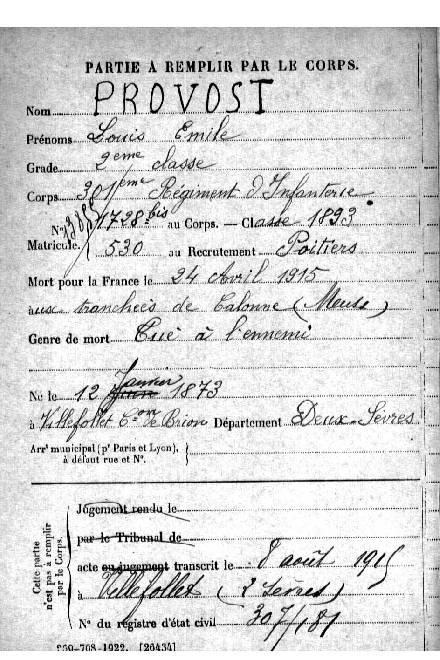 PARTIE A REMPLIR PAR LE CORPS.
Nom PROVOST
Prénoms Louis Emile
Grade 2eme classe
Corps 301eme Régiment d'Infanterie
N° 1728 bis au Corps. — Classe 1893
Matricule. 530 au Recrutement Poitiers
Mort pour la France le 24 Avril 1915
aux tranchées de Calonne (Meuse)
Genre de mort Tué à l'ennemi
Janvier
Né le 12 Juin 1873
à Villefollet Con de Brion Département Deux-Sèvres
Arrt municipal (pr Paris et Lyon),
à défaut rue et N°.
Cette partie
n'est pas à remplir
par le Corps.
Jugement rendu le
par le Tribunal de
acte ou jugement transcrit le 8 août 1915
à Villefollet (2 Sèvres)
N° du registre d'état civil 307/181
-708-1922. [26434]